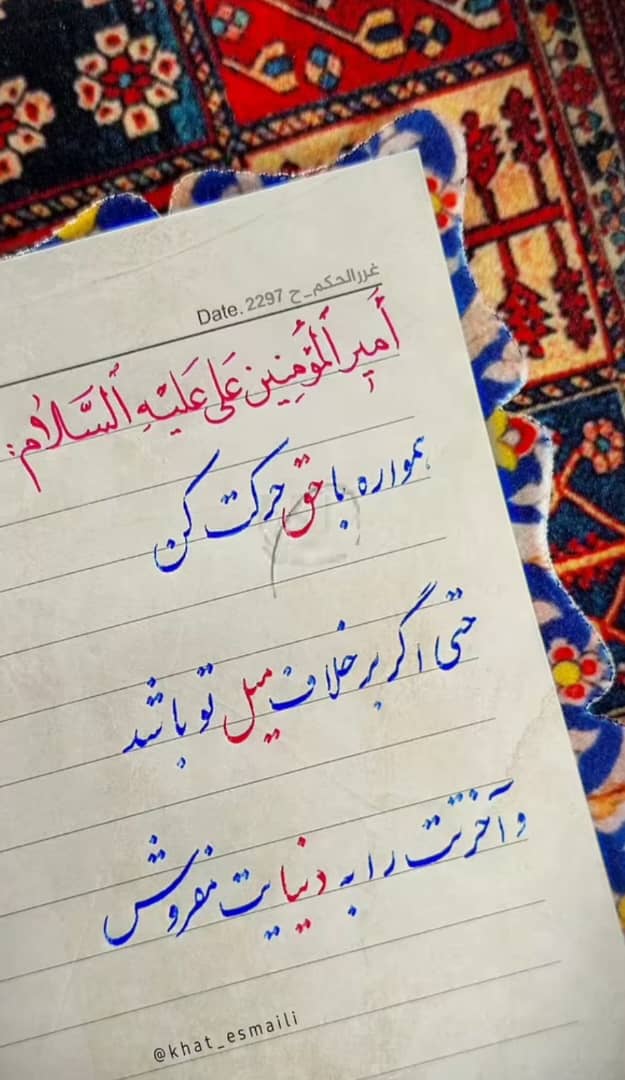 غررالحکم_ح 2297 Date.
أَمیرِ ٱلْمُؤمِنین عَلی عَلَیْهِ ٱلسَّلام:
همواره با حق حرکت کن
حتی اگر بر خلاف میل تو باشد
و آخرتت را به دنیایت مفروش
@khat_esmaili